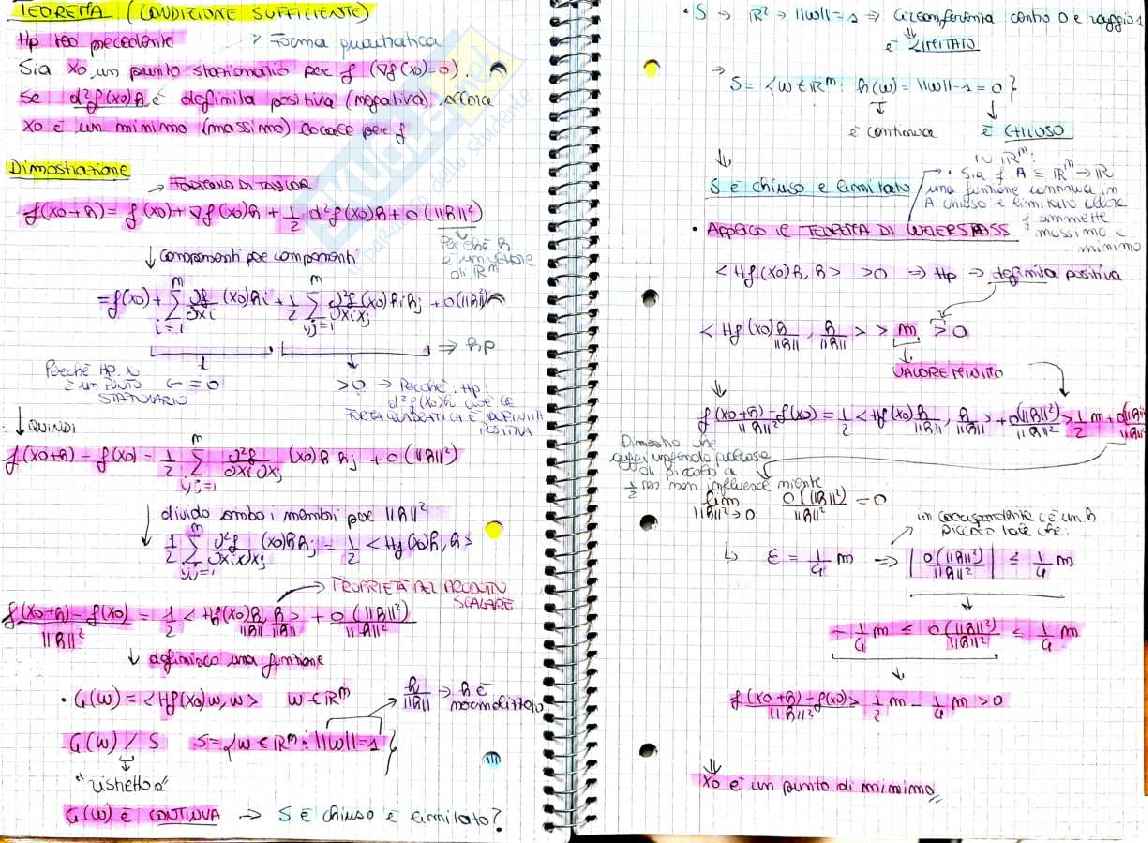 TEOREMA (CONDIZIONE SUFFICIENTE)
Hp teo precedente → Forma quadratica
Sia x0 un punto stazionario per f (∇f(x0)=0).
Se d²f(x0)h è definita positiva (negativa), allora
x0 è un minimo (massimo) locale per f
Dimostrazione
→ FORMULA DI TAYLOR
f(x0+h) = f(x0)+∇f(x0)h + 1/2 d²f(x0)h + o(||h||²)
Perché h
è un vettore
di R^m
↓ componenti per componenti
= f(x0) + Σ_{i=1}^{m} ∂f/∂xi (x0)hi + 1/2 Σ_{i,j=1}^{m} ∂²f/∂xi xj (x0) hi hj + o(||h||²)
⇒ hp
Perché Hp.
è un PUNTO ← = 0
STAZIONARIO
>0 → Perché Hp.
d²f(x0)h
FORMA QUADRATICA È DEFINITA
POSITIVA
↓ QUINDI
f(x0+h) - f(x0) = 1/2 Σ_{i,j=1}^{m} ∂²f/∂xi ∂xj (x0) h hj + o(||h||²)
↓ divido ambo i membri per ||h||²
1/2 Σ_{i,j=1}^{m} ∂²f/∂xi ∂xj (x0)hi hj = 1/2 <Hf(x0)h, h>
→ PROPRIETÀ DEL PRODOTTO
SCALARE
f(x0+h) - f(x0)/||h||² = 1/2 <Hf(x0)h/||h||, h/||h||> + o(||h||²)/||h||²
↓ definisco una funzione
• G(w) = <Hf(x0)w, w> w ∈ R^m
h/||h|| → h è
normalizzato
G(w) / S S = {w ∈ R^m : ||w|| = 1}
↓
"ristretto a"
G(w) è CONTINUA → S è chiuso e limitato?
• S → R² → ||w|| = 1 ⇒ circonferenza centro 0 e raggio 1
⇓
è LIMITATO
→ S = {w ∈ R^m : h(w) = ||w|| - 1 = 0}
↓ ↓
è continua È CHIUSO
↓
S è chiuso e limitato
IN R^m:
• Sia f A ⊆ R^m → R
una funzione continua in
A chiuso e limitato allora
f ammette
massimo e
minimo
• Applico il TEOREMA DI WEIERSTRASS
<Hf(x0)h, h> > 0 ⇒ Hp → definita positiva
<Hf(x0)h/||h||, h/||h||> > m > 0
↓
VALORE MINIMO
⇓
f(x0+h) - f(x0)/||h||² = 1/2 <Hf(x0)h/||h||, h/||h||> + o(||h||²)/||h||² > 1/2 m + o(||h||²)/||h||
Dimostro che
aggiungendo qualcosa
di piccolo a
1/2 m non influenza niente
lim_{||h||²→0} o(||h||²)/||h||² = 0
in corrispondente c'è un h
piccolo tale che:
↳ ε = 1/4 m ⇒ |o(||h||²)/||h||²| ≤ 1/4 m
↓
- 1/4 m ≤ o(||h||²)/||h||² ≤ 1/4 m
↓
f(x0+h) - f(x0)/||h||² > 1/2 m - 1/4 m > 0
⇓
x0 è un punto di minimo